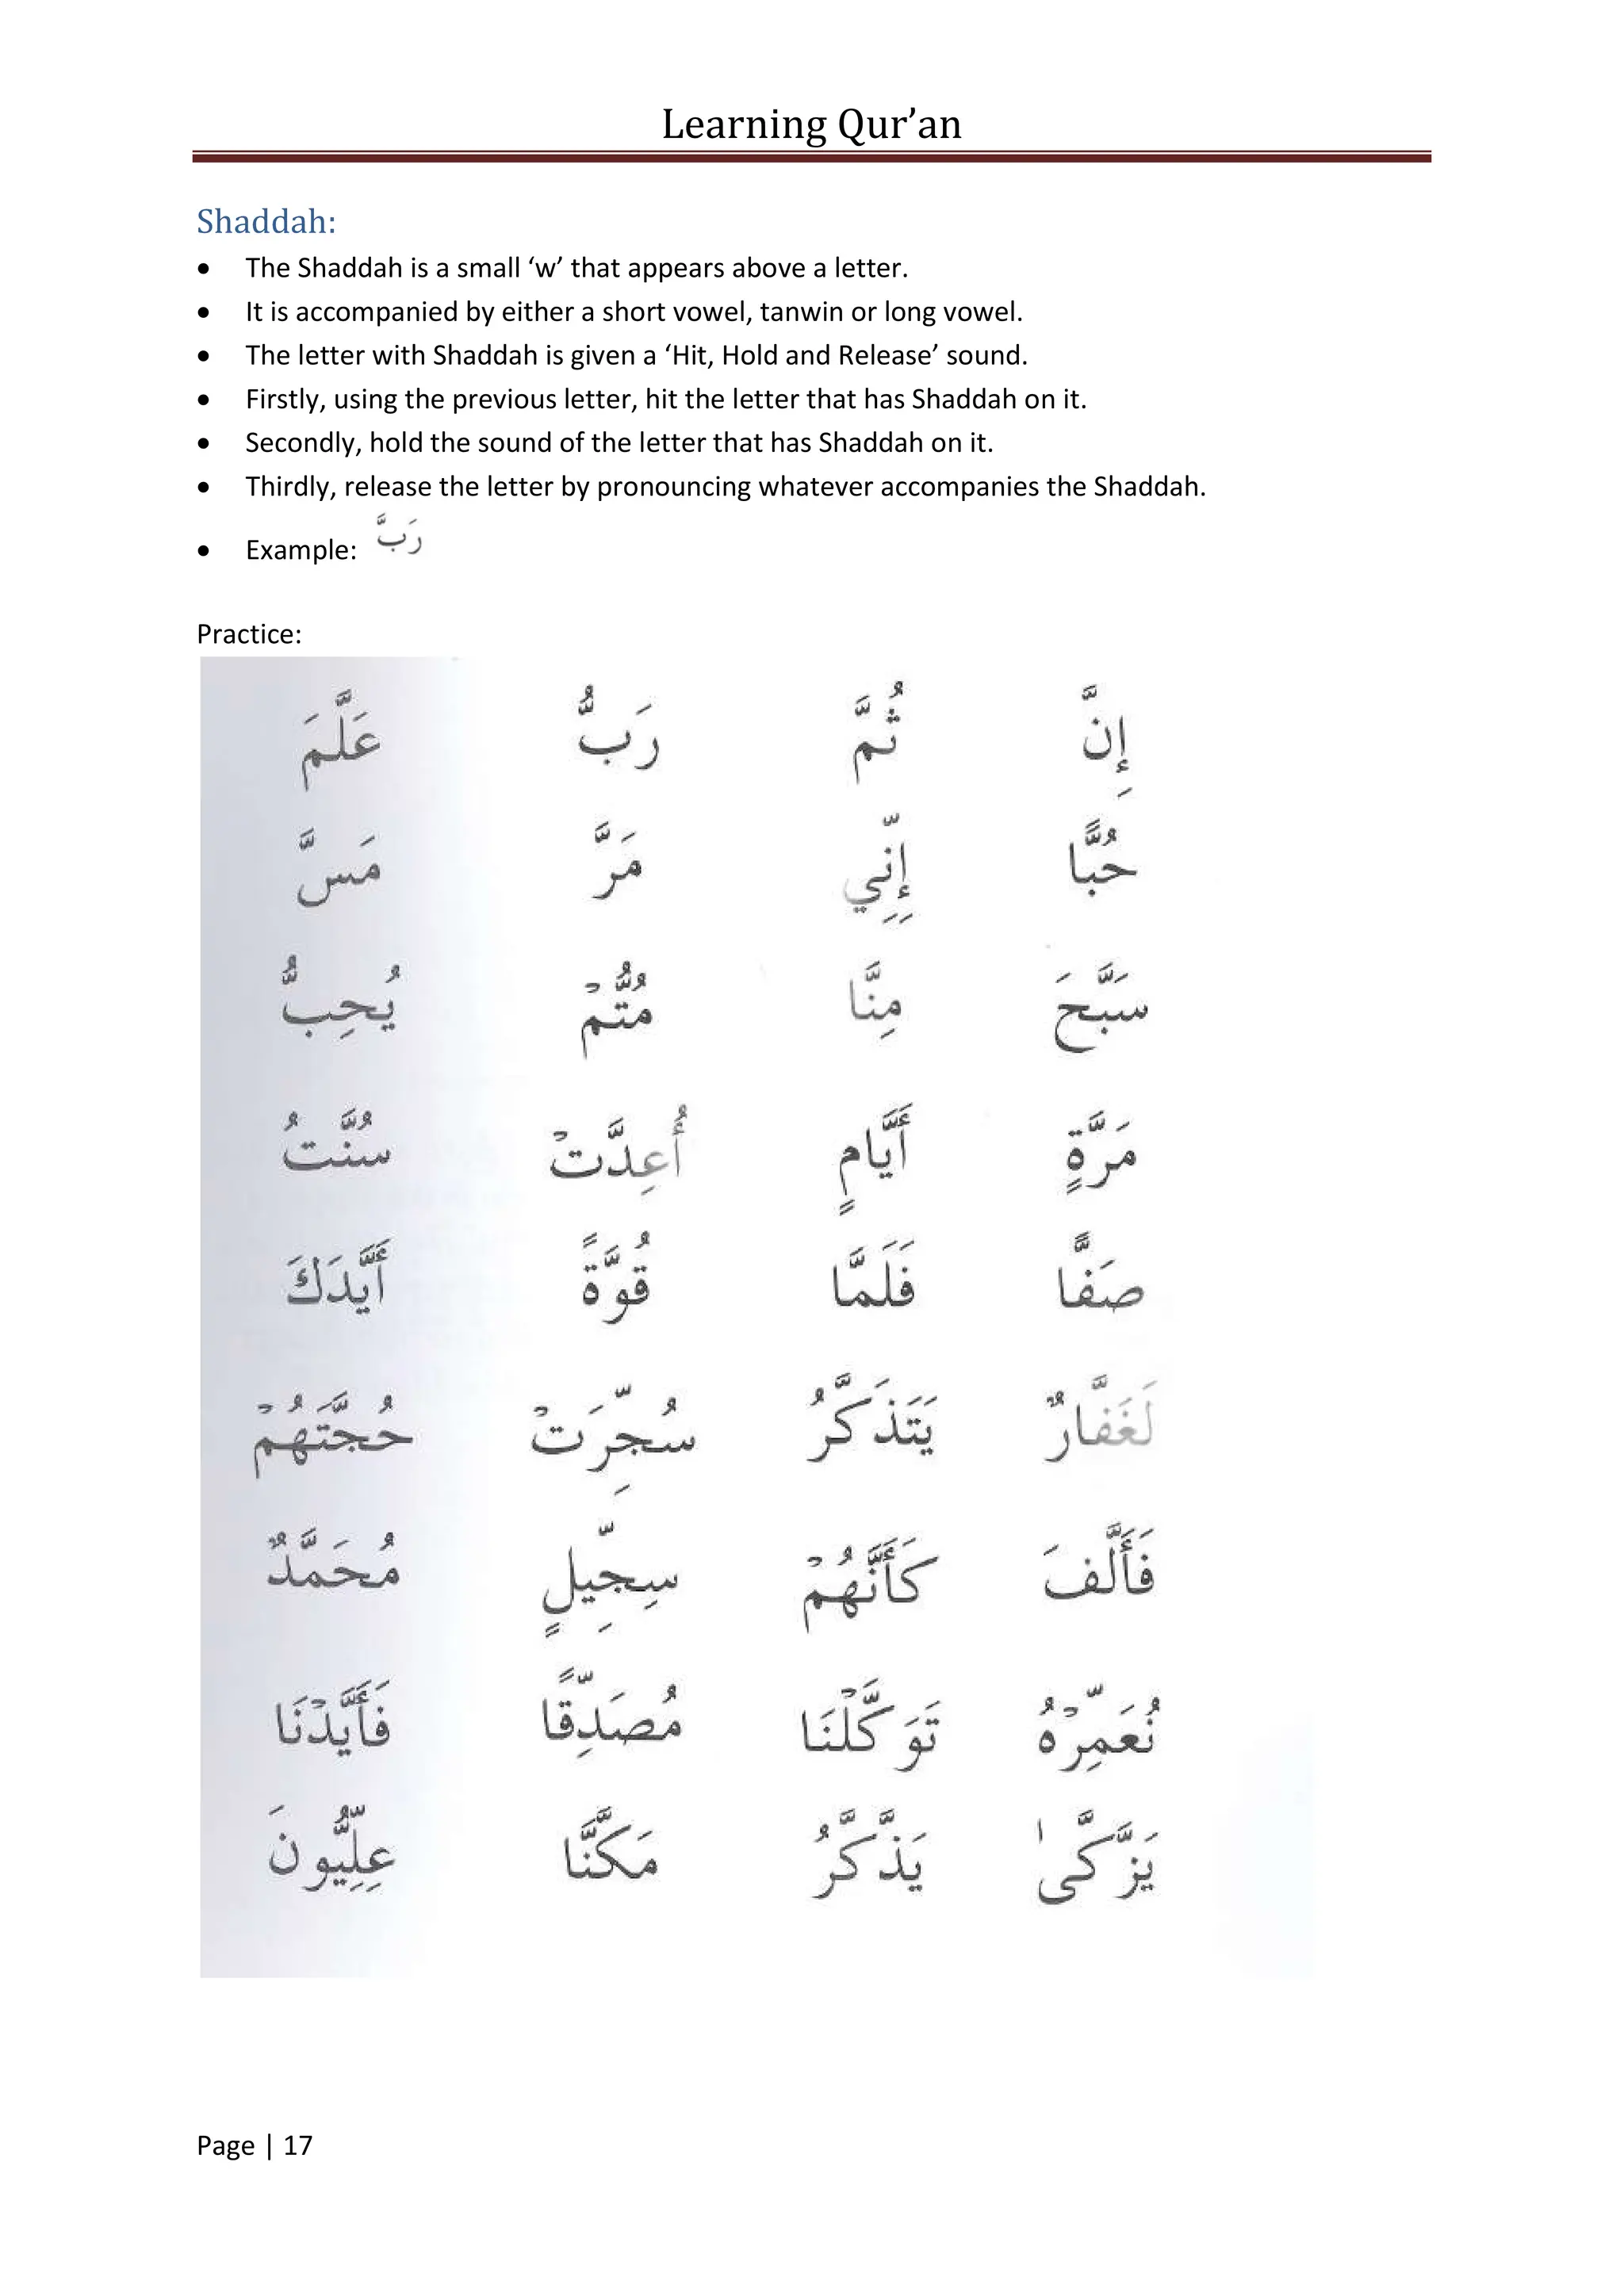 Learning Qur’an
Shaddah:
• The Shaddah is a small ‘w’ that appears above a letter.
• It is accompanied by either a short vowel, tanwin or long vowel.
• The letter with Shaddah is given a ‘Hit, Hold and Release’ sound.
• Firstly, using the previous letter, hit the letter that has Shaddah on it.
• Secondly, hold the sound of the letter that has Shaddah on it.
• Thirdly, release the letter by pronouncing whatever accompanies the Shaddah.
• Example: رَبَّ
Practice:
إِنَّ ثُمَّ رَبُّ عَلَّمَ
حُبًّا إِنِّي مَرَّ مَسَّ
سَبَّحَ مِنَّا مُتُّمْ يُحِبُّ
مَرَّةٍ أَيَّامٍ أُعِدَّتْ سُنَّتُ
صَفًّا فَلَمَّا قُوَّةً أَيَّدَكَ
لَغَفَّارٌ يَتَذَكَّرُ سُجِّرَتْ حُجَّتَهُمْ
فَأَلَّفَ كَأَنَّهُمْ سِجِّيلٍ مُحَمَّدٌ
نُعَمِّرْهُ تَوَكَّلْنَا مُصَدِّقًا فَأَيَّدْنَا
يَزَّكَّىٰ يَذَّكَّرُ مَكَّنَّا عِلِّيُّونَ
Page | 17